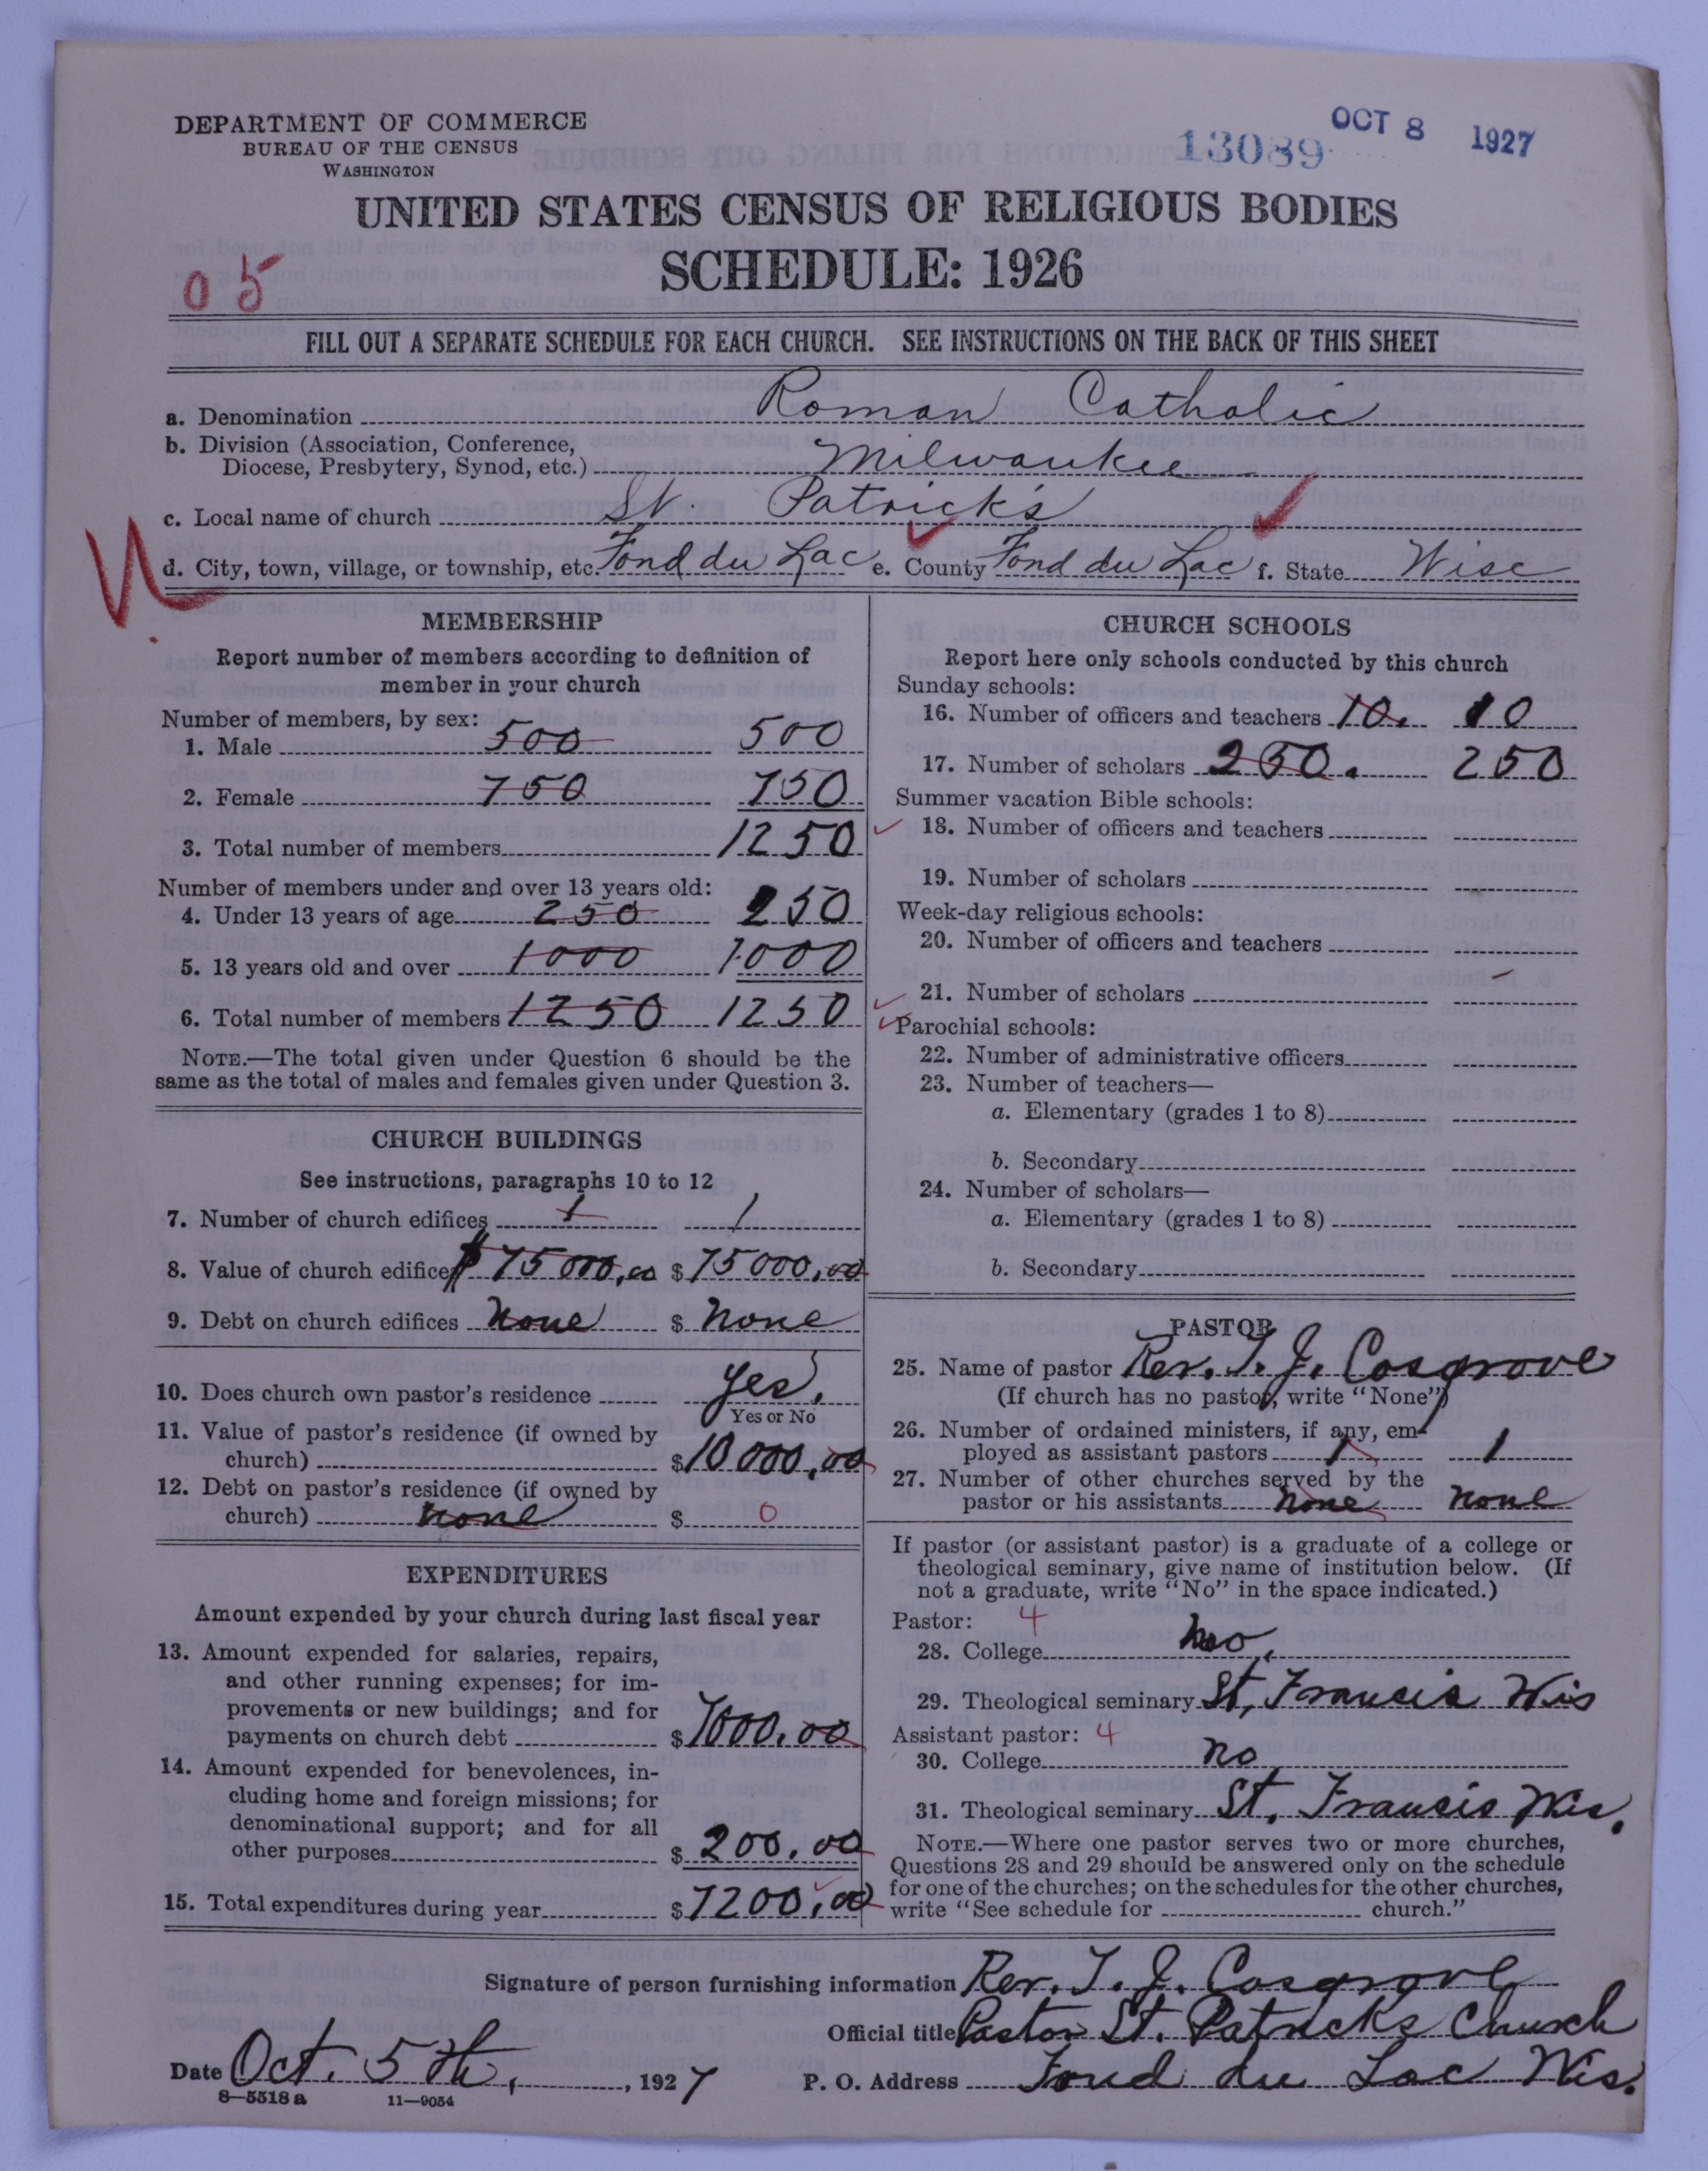 DEPARTMENT OF COMMERCE
BUREAU OF THE CENSUS
WASHINGTON
13089
OCT 8 1927
UNITED STATES CENSUS OF RELIGIOUS BODIES
SCHEDULE: 1926
05
FILL OUT A SEPARATE SCHEDULE FOR EACH CHURCH. SEE INSTRUCTIONS ON THE BACK OF THIS SHEET
a. Denomination Roman Catholic
b. Division (Association, Conference,
Diocese, Presbytery, Synod, etc.) Milwaukee
c. Local name of church St. Patrick's
d. City, town, village, or township, etc. Fond du Lac e. County Fond du Lac f. State Wisc
MEMBERSHIP
Report number of members according to definition of
member in your church
Number of members, by sex:
1. Male 500 500
2. Female 750 750
3. Total number of members 1250
Number of members under and over 13 years old:
4. Under 13 years of age 250 250
5. 13 years old and over 1000 1000
6. Total number of members 1250 1250
NOTE.—The total given under Question 6 should be the
same as the total of males and females given under Question 3.
CHURCH BUILDINGS
See instructions, paragraphs 10 to 12
7. Number of church edifices 1 1
8. Value of church edifices $75000.00 $75000.00
9. Debt on church edifices None $ None
10. Does church own pastor's residence Yes.
Yes or No
11. Value of pastor's residence (if owned by
church) $10000.00
12. Debt on pastor's residence (if owned by
church) None $ 0
EXPENDITURES
Amount expended by your church during last fiscal year
13. Amount expended for salaries, repairs,
and other running expenses; for im-
provements or new buildings; and for
payments on church debt $7000.00
14. Amount expended for benevolences, in-
cluding home and foreign missions; for
denominational support; and for all
other purposes $200.00
15. Total expenditures during year $7200.00
CHURCH SCHOOLS
Report here only schools conducted by this church
Sunday schools:
16. Number of officers and teachers 10. 10
17. Number of scholars 250. 250
Summer vacation Bible schools:
18. Number of officers and teachers
19. Number of scholars
Week-day religious schools:
20. Number of officers and teachers
21. Number of scholars
Parochial schools:
22. Number of administrative officers
23. Number of teachers—
a. Elementary (grades 1 to 8)
b. Secondary
24. Number of scholars—
a. Elementary (grades 1 to 8)
b. Secondary
PASTOR
25. Name of pastor Rev. T. J. Cosgrove
(If church has no pastor, write "None")
26. Number of ordained ministers, if any, em-
ployed as assistant pastors 1 1
27. Number of other churches served by the
pastor or his assistants None None
If pastor (or assistant pastor) is a graduate of a college or
theological seminary, give name of institution below. (If
not a graduate, write "No" in the space indicated.)
Pastor: 4
28. College No.
29. Theological seminary St. Francis Wis
Assistant pastor: 4
30. College No
31. Theological seminary St. Francis Wis.
NOTE.—Where one pastor serves two or more churches,
Questions 28 and 29 should be answered only on the schedule
for one of the churches; on the schedules for the other churches,
write "See schedule for church."
Signature of person furnishing information Rev. T. J. Cosgrove
Official title Pastor St. Patricks Church
Date Oct. 5th, 1927 P. O. Address Fond du Lac Wis.
8—5518 a 11—9054